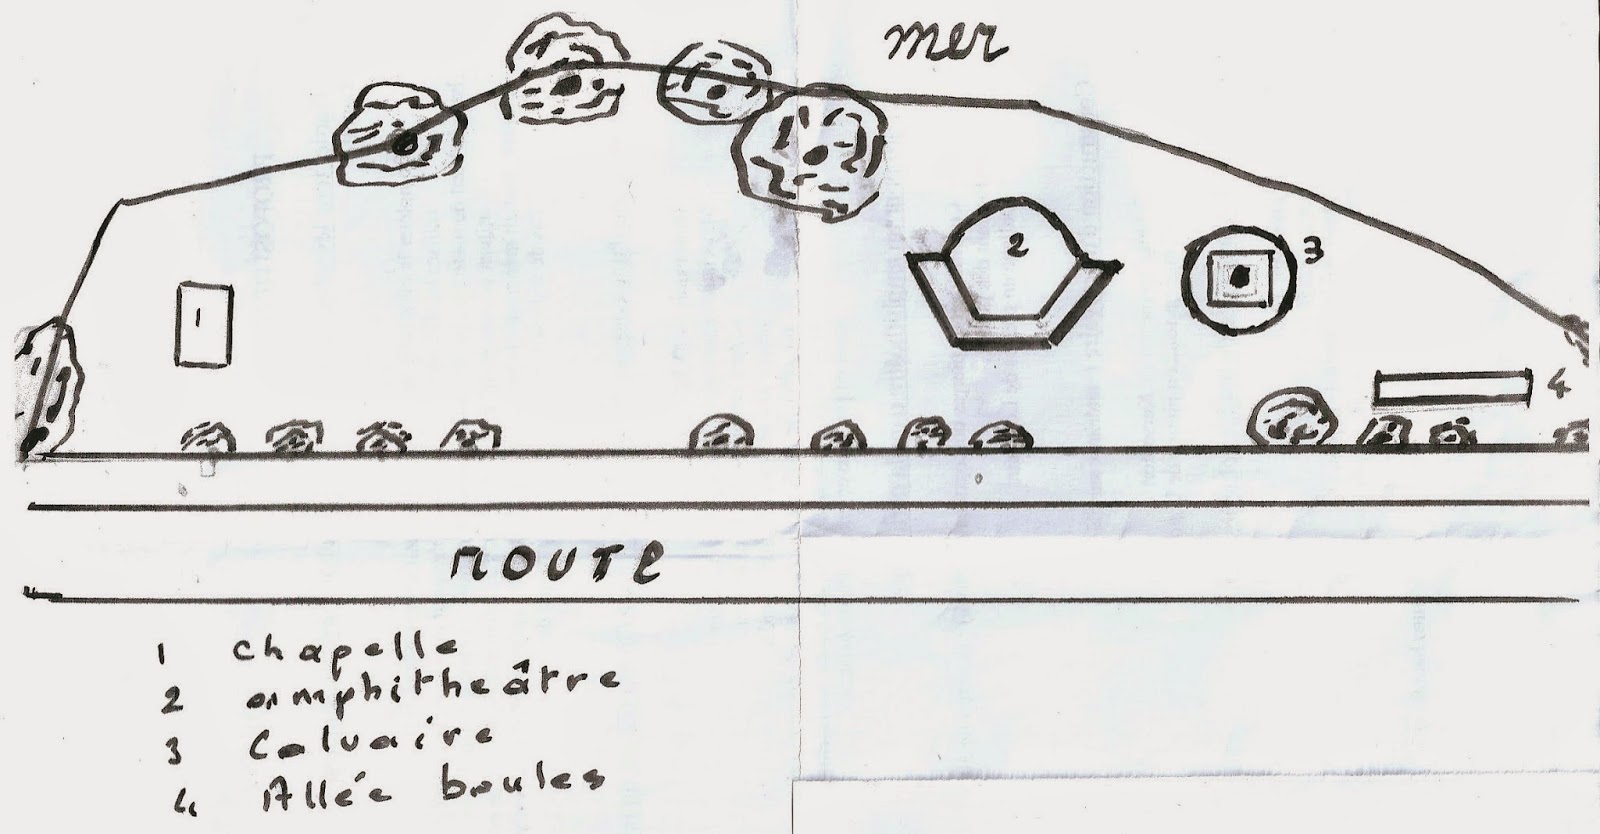 mer
2
3
1
4
ROUTE
1 chapelle
2 amphitheâtre
3 Calvaire
4 Allée boules